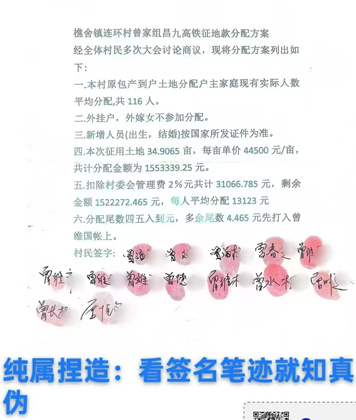 樵舍镇连环村曾家组昌九高铁征地款分配方案
经全体村民多次大会讨论商议，现将分配方案列出如
下：
一.本村原包产到户土地分配户主家庭现有实际人数
平均分配,共 116 人。
二.外挂户，外嫁女不参加分配。
三.新增人员(出生，结婚)按国家所发证件为准。
四.本次征用土地 34.9065 亩，每亩单价 44500 元/亩，
共计分配金额为 1553339.25 元。
五.扣除村委会管理费 2%元共计 31066.785 元，剩余
金额 1522272.465 元，每人平均分配 13123 元
六.分配尾数四五入到元，多余尾数 4.465 元先打入曾
维国帐上。
村民签字：
纯属捏造：看签名笔迹就知真
伪